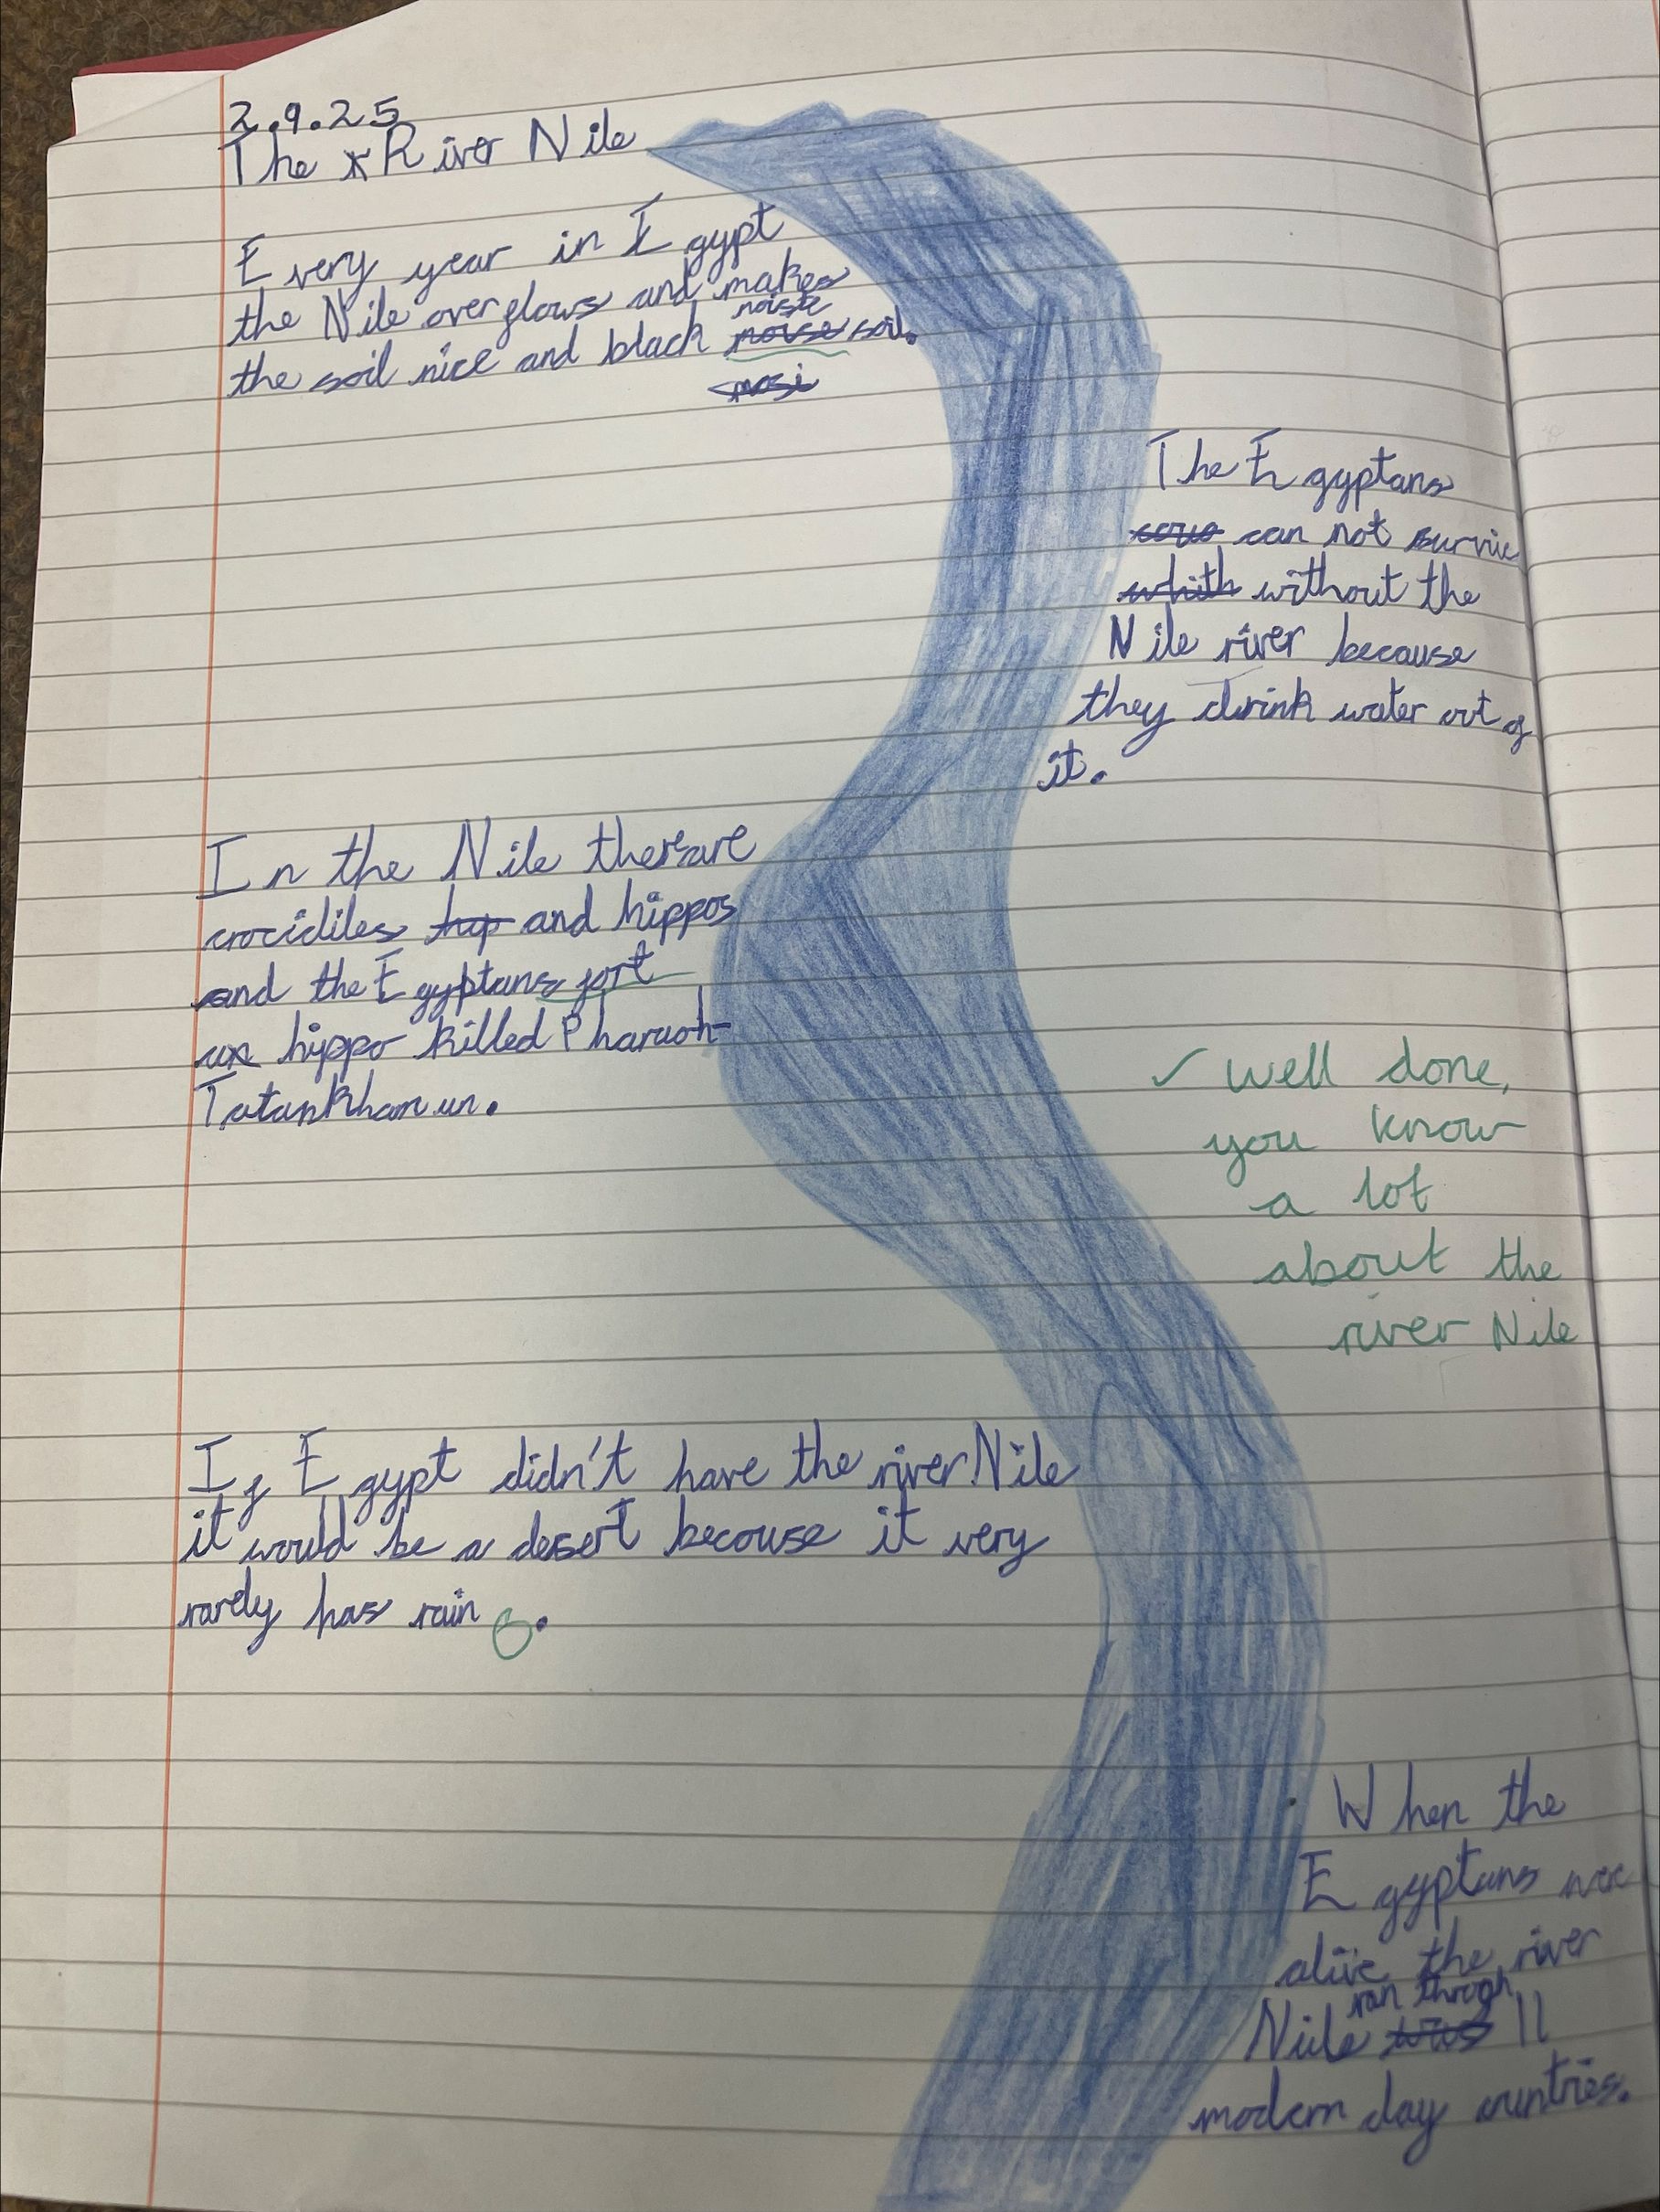 2.9.25
The River Nile
Every year in Egypt
the Nile overflows and makes
noiste
the soil nice and black noise soil.
mosi
The Egyptans
cous can not survive
whith without the
Nile river because
they drink water out of
it.
In the Nile there are
crocidiles hop and hippos
and the Egyptans fort
a hippo killed Pharaoh
Tatankhamun.
well done,
you know
a lot
about the
river Nile
If Egypt didn't have the river Nile
it would be a desert becouse it very
rarely has rain.
When the
Egyptans were
alive the river
ran throgh
Nile was 11
modern day cuntries.